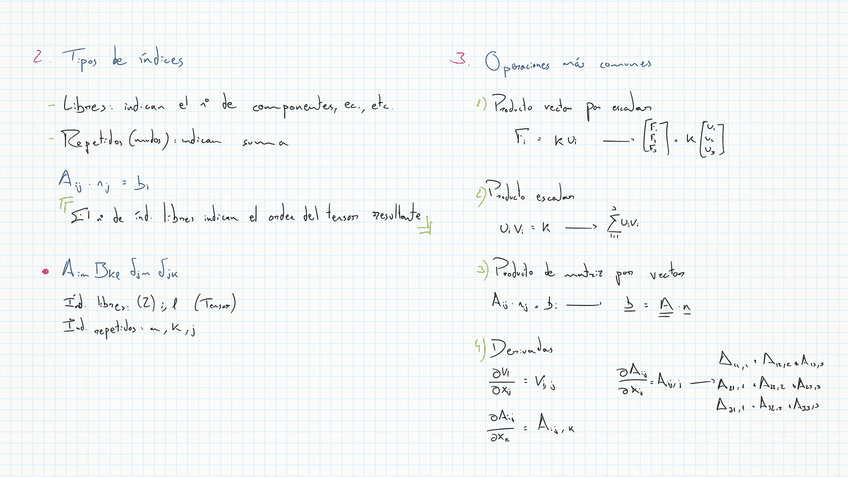 2. Tipos de índices
- Libres: indican el nº de componentes, ec., etc.
- Repetidos (mudos): indican suma
Aij · nj = bi
El nº de índ. libres indican el orden del tensor resultante
• Aim Bkl δjm δjk
Índ. libres: (2) i, l (Tensor)
Índ. repetidos: m, k, j
3. Operaciones más comunes
1) Producto vector por escalar
Fi = k ui → [F1 F2 F3] = k [u1 u2 u3]
2) Producto escalar
ui vi = k → ∑ i=1 3 ui vi
3) Producto de matriz por vector
Aij · nj = bi → b = A · n
4) Derivadas
∂vi/∂xj = vi,j
∂Aij/∂xj = Aij,j → A11,1 + A12,2 + A13,3
A21,1 + A22,2 + A23,3
A31,1 + A32,2 + A33,3
∂Aij/∂xk = Aij,k